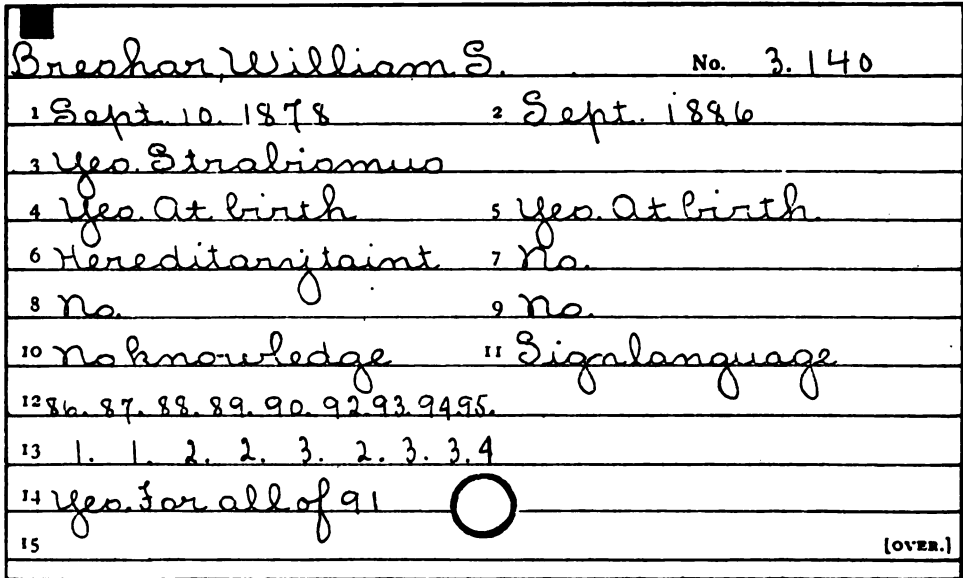 Breshar, William S. No. 3.140
1 Sept. 10. 1878 2 Sept. 1886
3 Yes. Strabismus
4 Yes. At birth 5 Yes. At birth.
6 Hereditary taint 7 No.
8 No. 9 No.
10 No knowledge 11 Sign language
12 86. 87. 88. 89. 90. 92. 93. 94. 95.
13 1. 1. 2. 2. 3. 2. 3. 3. 4
14 Yes. For all of 91
15 [OVER.]